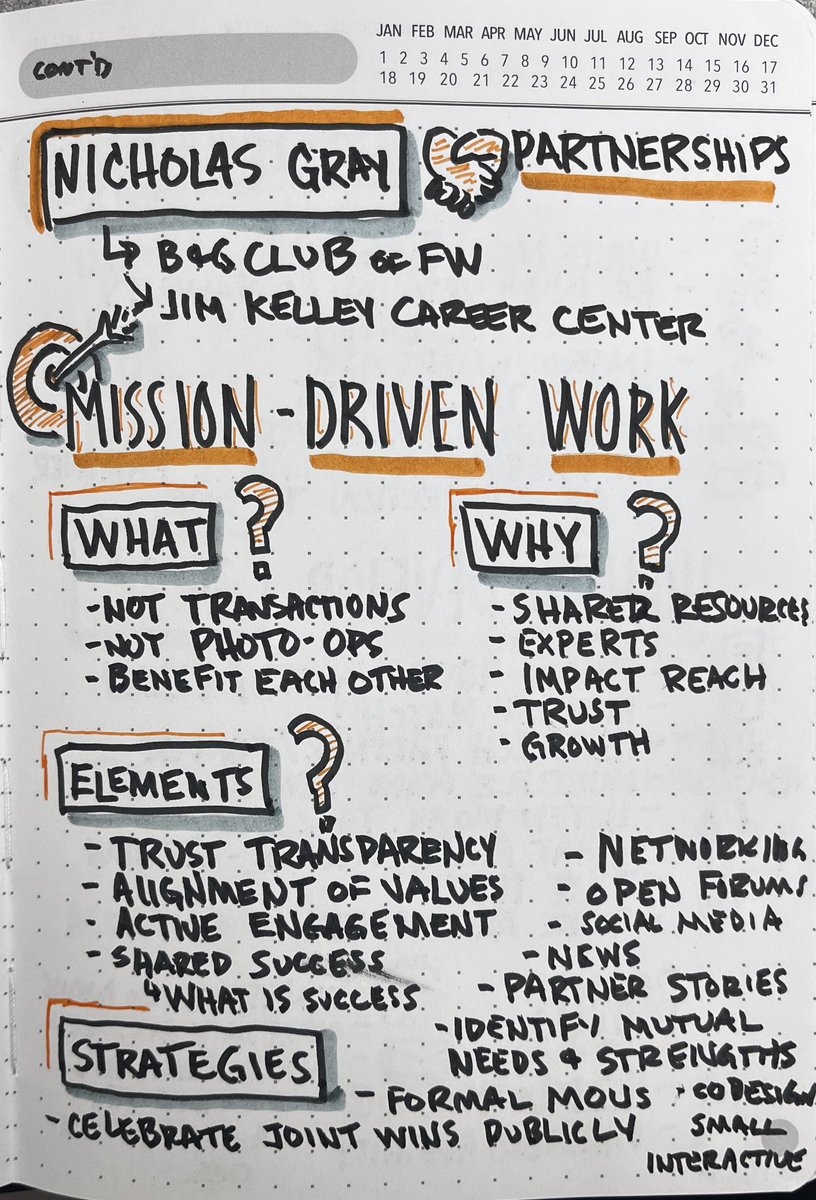 CONT'D
JAN FEB MAR APR MAY JUN JUL AUG SEP OCT NOV DEC
1 2 3 4 5 6 7 8 9 10 11 12 13 14 15 16 17
18 19 20 21 22 23 24 25 26 27 28 29 30 31
NICHOLAS GRAY PARTNERSHIPS
B&G CLUB OF FW
JIM KELLEY CAREER CENTER
MISSION-DRIVEN WORK
WHAT?
- NOT TRANSACTIONS
- NOT PHOTO-OPS
- BENEFIT EACH OTHER
WHY?
- SHARED RESOURCES
- EXPERTS
- IMPACT REACH
- TRUST
- GROWTH
ELEMENTS?
- TRUST TRANSPARENCY
- ALIGNMENT OF VALUES
- ACTIVE ENGAGEMENT
- SHARED SUCCESS
↳ WHAT IS SUCCESS
STRATEGIES
- NETWORKING
- OPEN FORUMS
- SOCIAL MEDIA
- NEWS
- PARTNER STORIES
- IDENTIFY MUTUAL
NEEDS & STRENGTHS
- FORMAL MOUS
- CODESIGN
SMALL
INTERACTIVE
- CELEBRATE JOINT WINS PUBLICLY